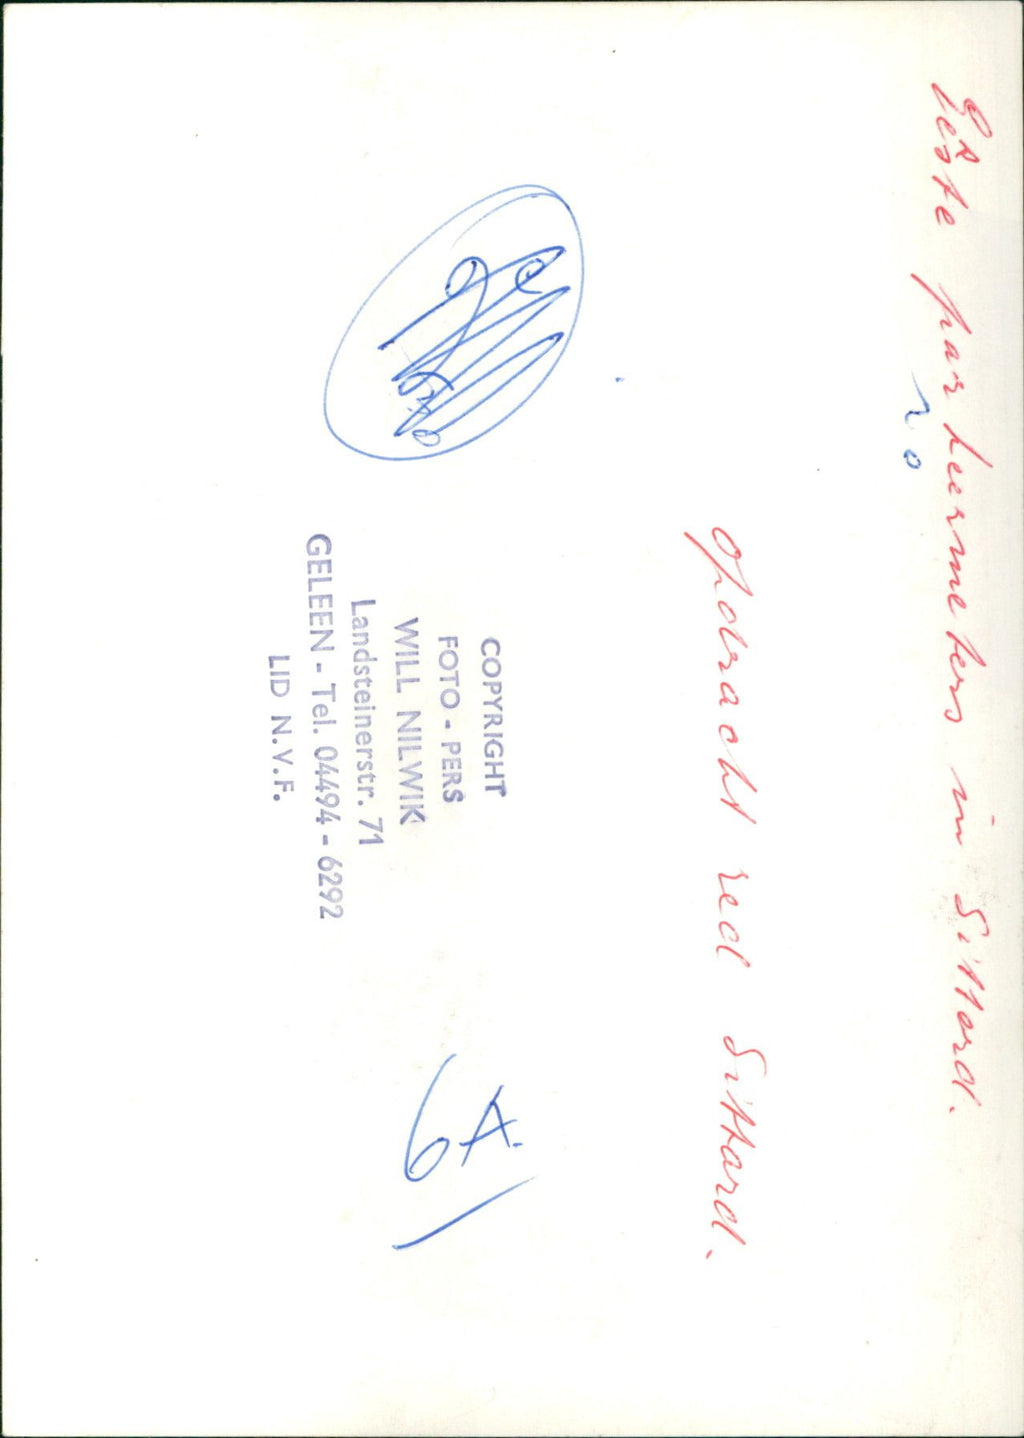 Eerste parkeermeters in Sittard.
20
opdracht red Sittard.
COPYRIGHT
FOTO - PERS
WILL NILWIK
Landsteinerstr. 71
GELEEN - Tel. 04494 - 6292
LID N.V.F.
6A.